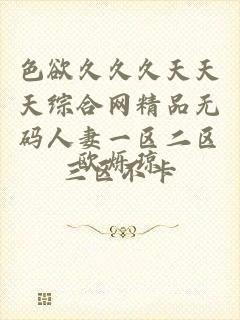 色欲久久久天天
天综合网精品无
码人妻一区二区
三区不卡
欧烁琼